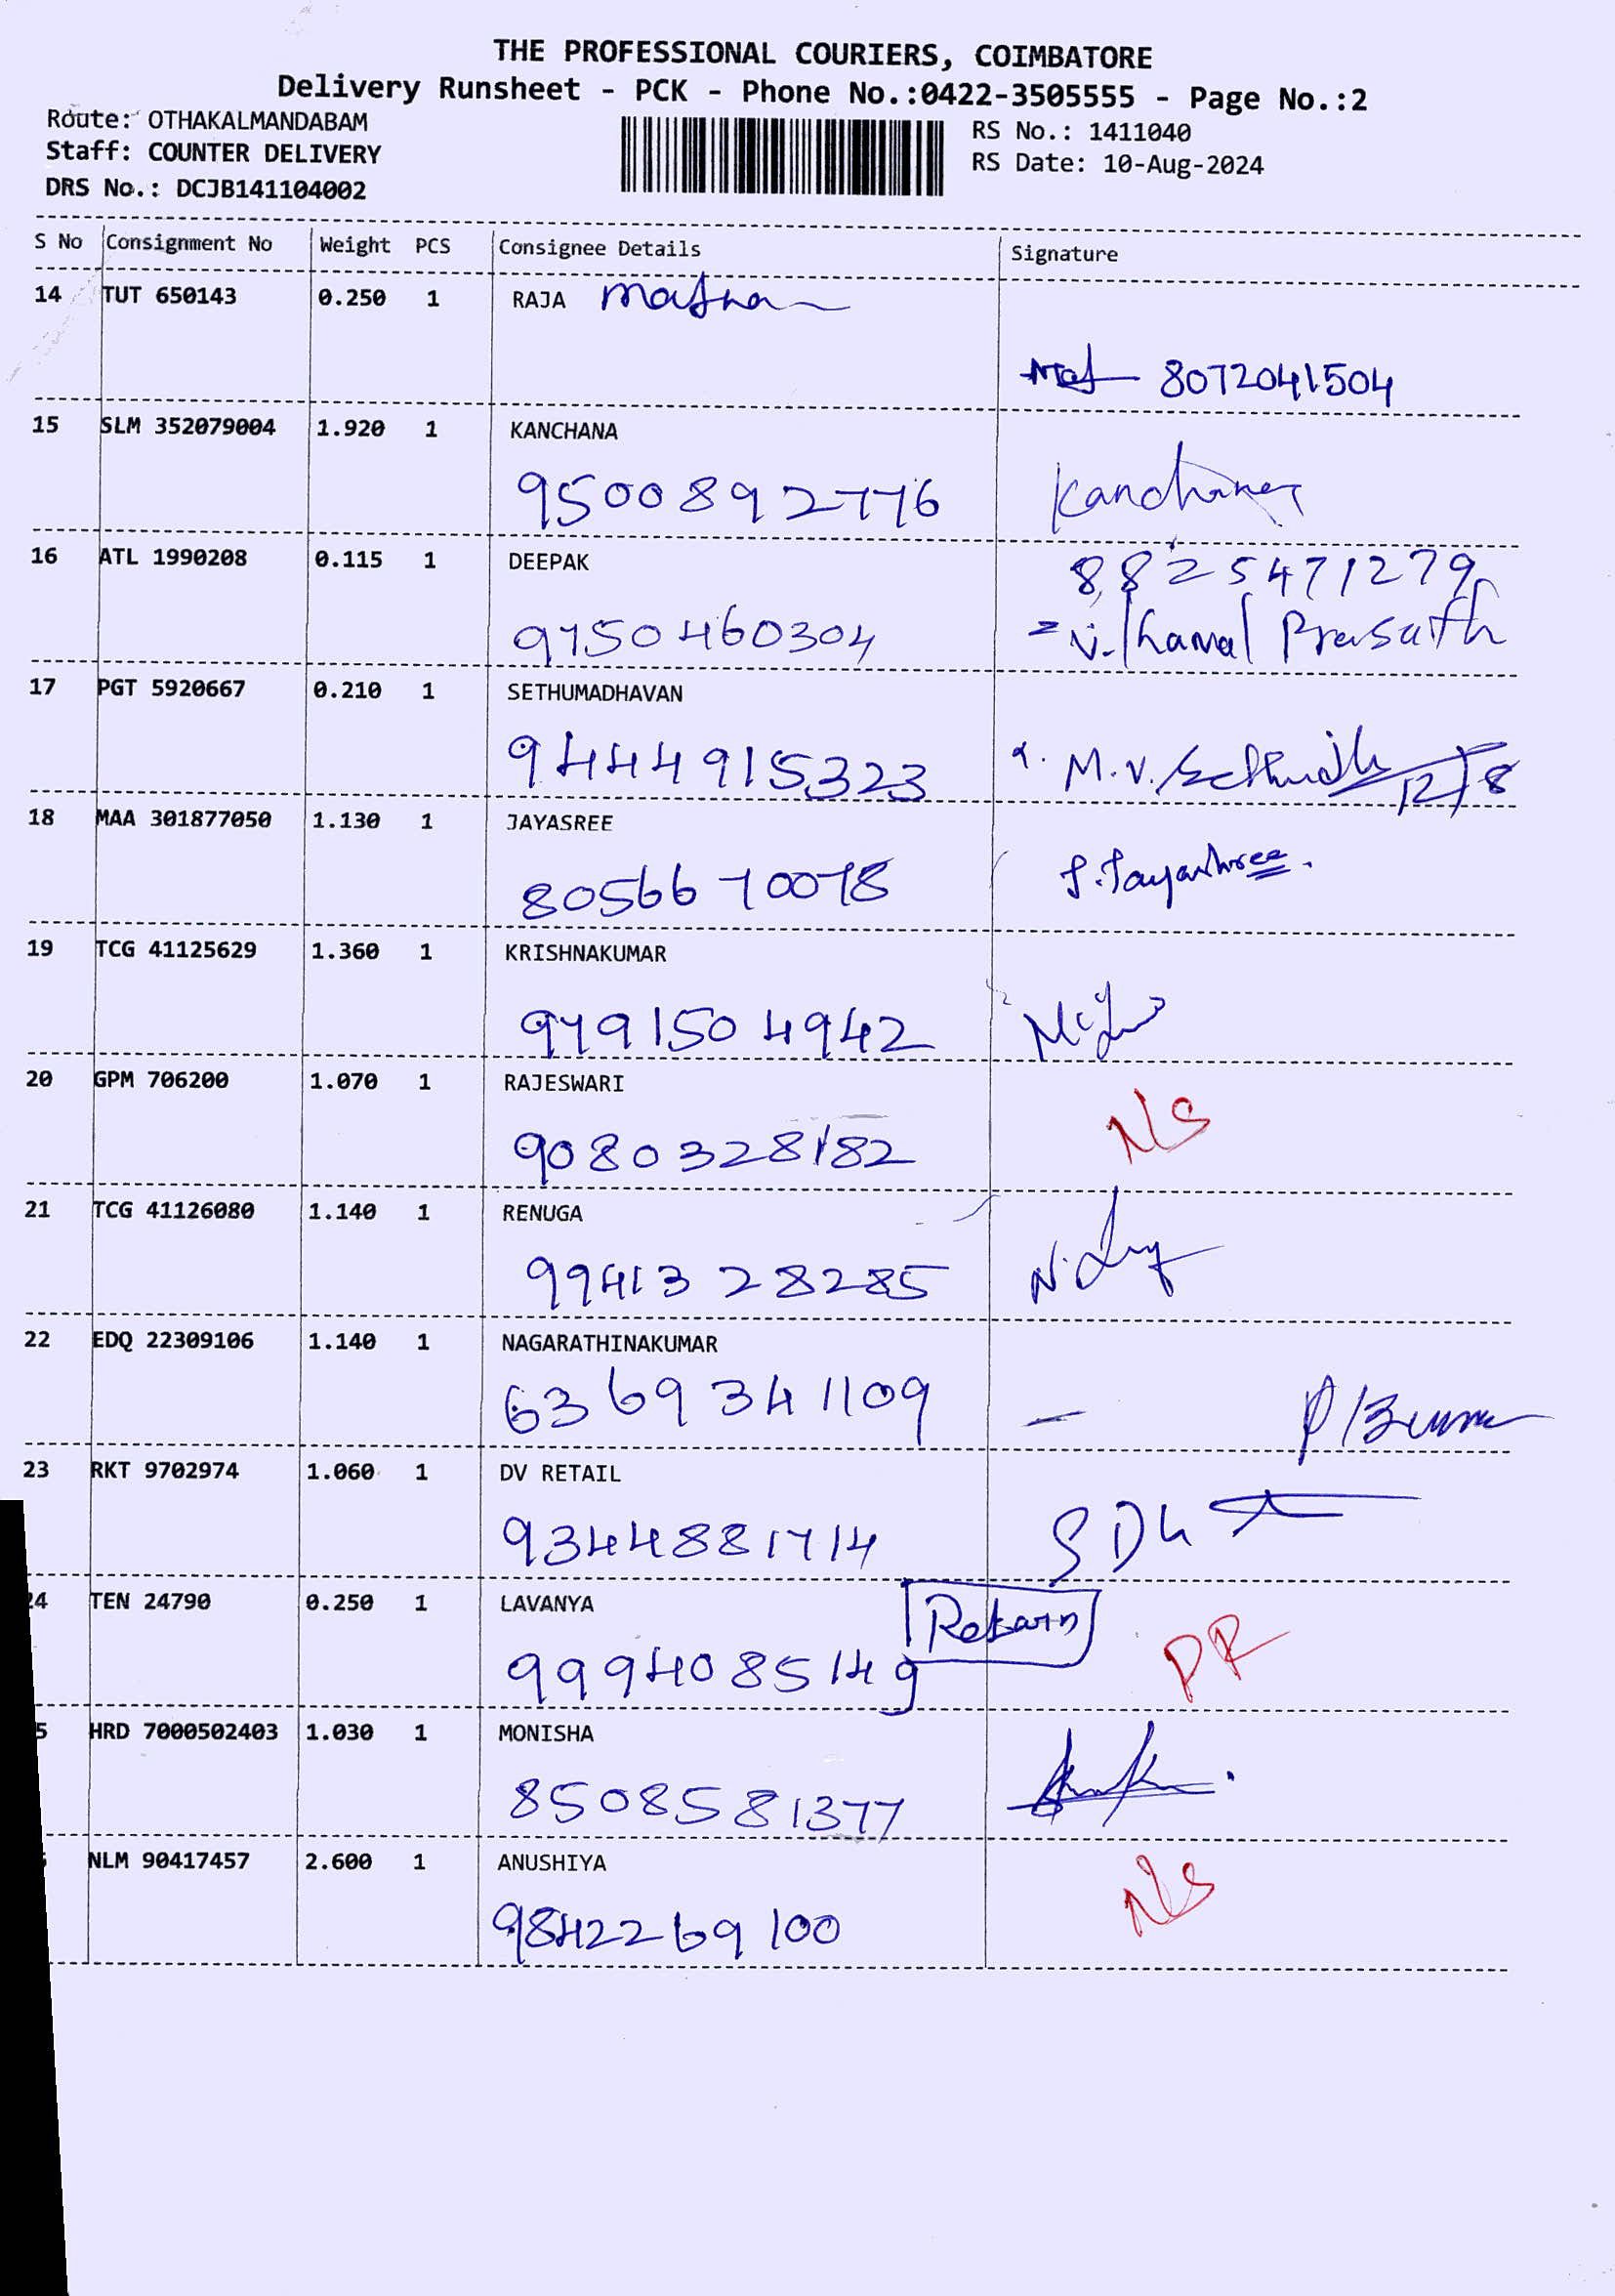 THE PROFESSIONAL COURIERS, COIMBATORE
Delivery Runsheet - PCK - Phone No.:0422-3505555 - Page No.:2
Route: OTHAKALMANDABAM
Staff: COUNTER DELIVERY
DRS No.: DCJB141104002
RS No.: 1411040
RS Date: 10-Aug-2024
S No Consignment No Weight PCS Consignee Details Signature
14 TUT 650143 0.250 1 RAJA
8072041504
15 SLM 352079004 1.920 1 KANCHANA
9500892776 Kanchana
16 ATL 1990208 0.115 1 DEEPAK 8825471279
9750460304 V. Kamal Prasaith
17 PGT 5920667 0.210 1 SETHUMADHAVAN
9444915323 M.V. 12/8
18 MAA 301877050 1.130 1 JAYASREE
8056670078 J. Jayashree.
19 TCG 41125629 1.360 1 KRISHNAKUMAR
9791504942
20 GPM 706200 1.070 1 RAJESWARI N/S
9080328182
21 TCG 41126080 1.140 1 RENUGA
9941328285
22 EDQ 22309106 1.140 1 NAGARATHINAKUMAR
6369341109
23 RKT 9702974 1.060 1 DV RETAIL
9344881714
24 TEN 24790 0.250 1 LAVANYA Return PR
9994085149
5 HRD 7000502403 1.030 1 MONISHA
8508581377
NLM 90417457 2.600 1 ANUSHIYA N/S
9842269100